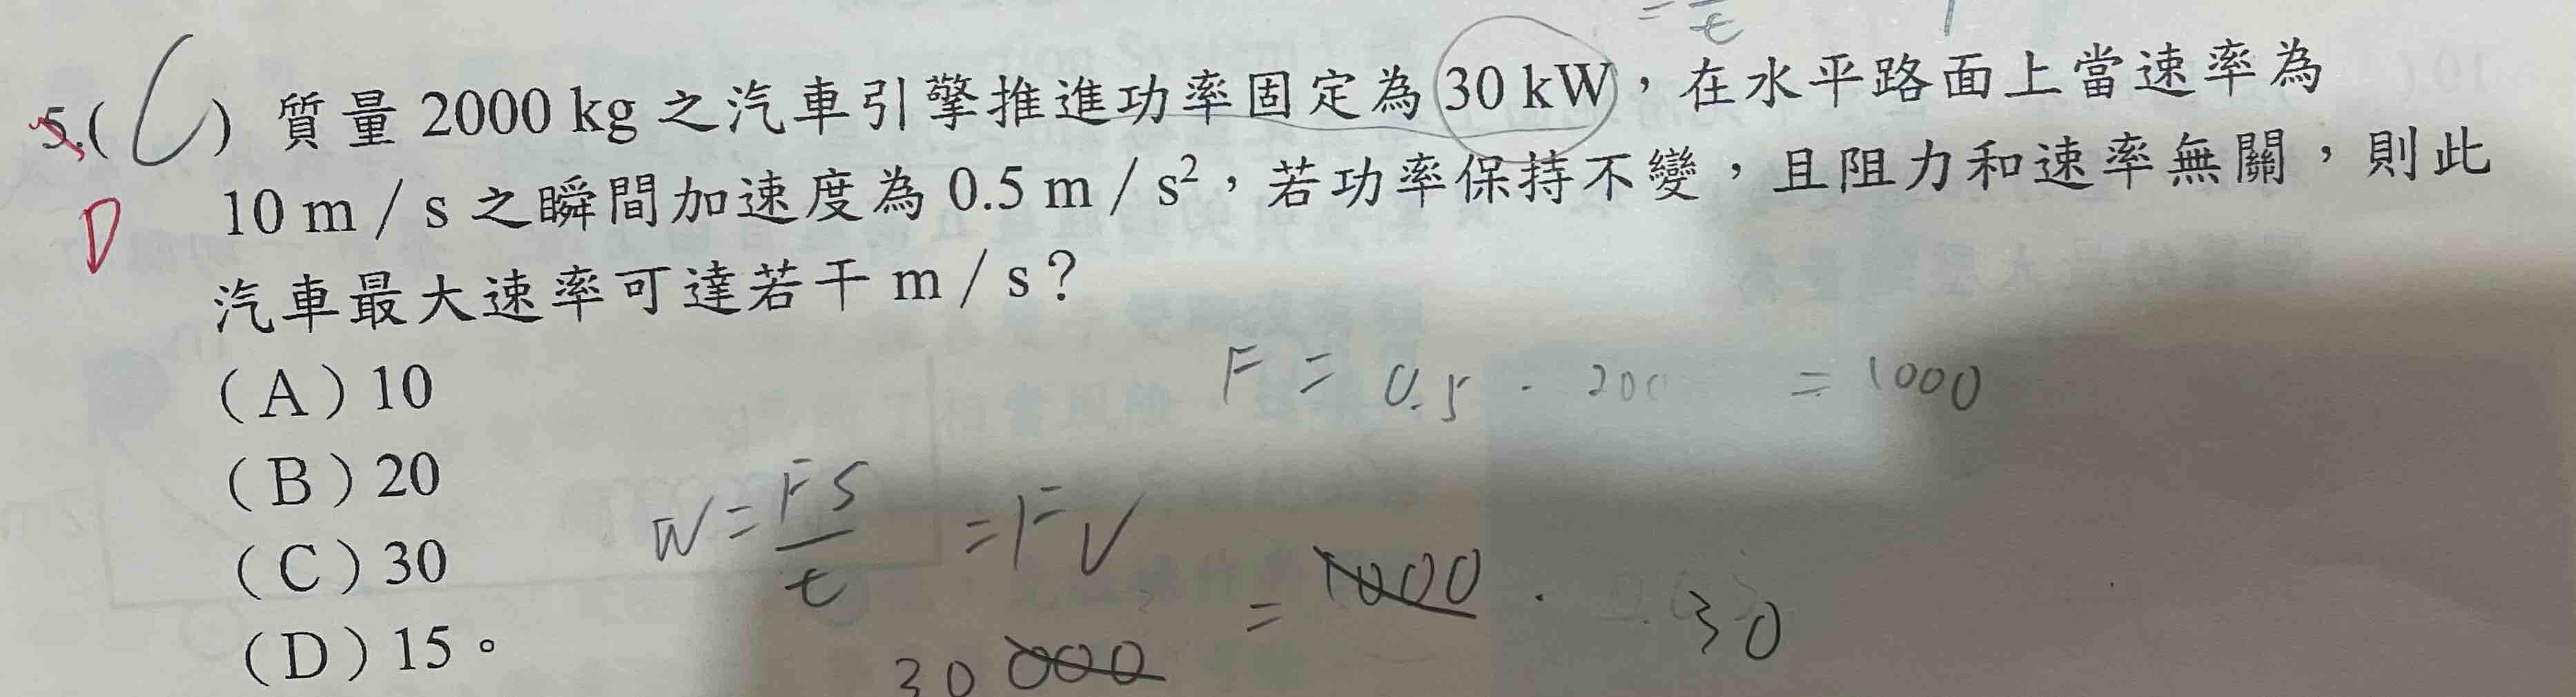 = — t
5.( C ) 質量 2000 kg 之汽車引擎推進功率固定為 30 kW,在水平路面上當速率為
D 10 m / s 之瞬間加速度為 0.5 m / s²,若功率保持不變,且阻力和速率無關,則此
汽車最大速率可達若干 m / s?
(A)10
F = 0.5 · 200 = 1000
(B)20
W = FS/t = FV
(C)30
= 1000 · 30
(D)15。
30 000